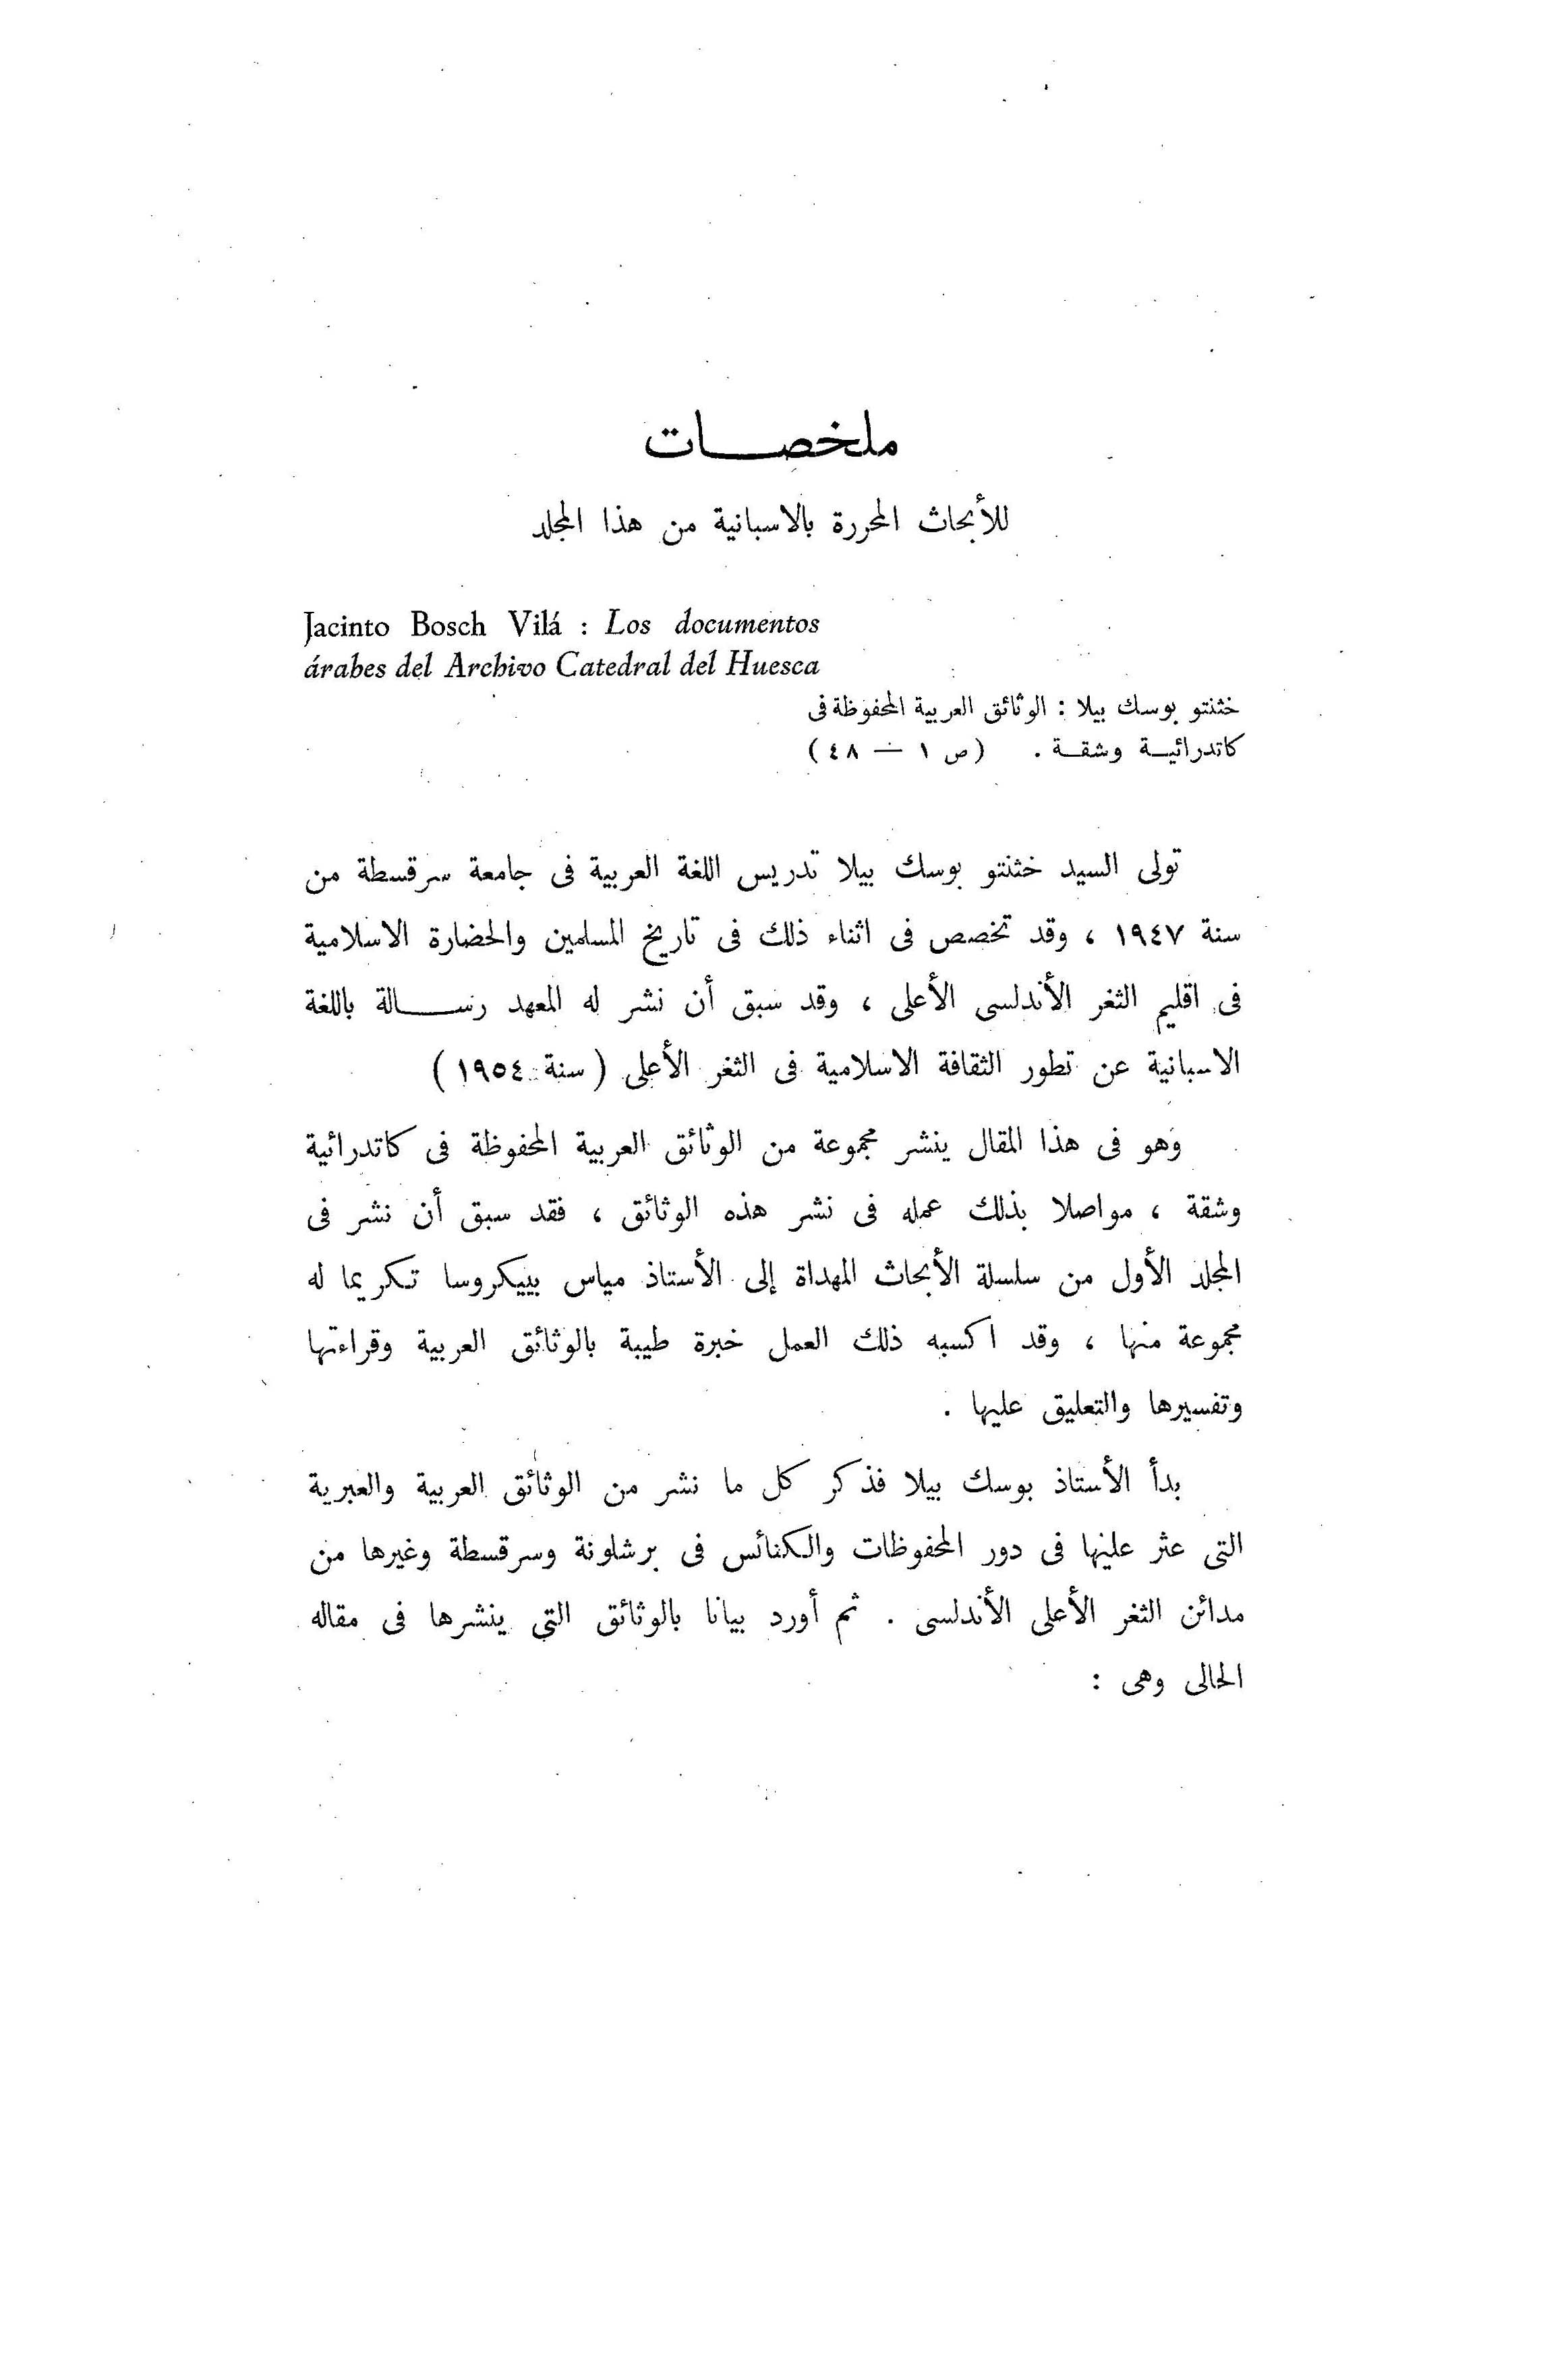 ملخصـــات
للأبحاث المحررة بالاسبانية من هذا المجلد
Jacinto Bosch Vilá : Los documentos
árabes del Archivo Catedral del Huesca
خثنتو بوسك بيلا : الوثائق العربية المحفوظة فى
كاتدرائيـة وشقـة . ( ص ١ — ٤٨ )
تولى السيد خثنتو بوسك بيلا تدريس اللغة العربية فى جامعة سرقسطة من
سنة ١٩٤٧ ، وقد تخصص فى اثناء ذلك فى تاريخ المسلمين والحضارة الاسلامية
فى اقليم الثغر الأندلسى الأعلى ، وقد سبق أن نشر له المعهد رســـالة باللغة
الاسبانية عن تطور الثقافة الاسلامية فى الثغر الأعلى ( سنة ١٩٥٤ )
وهو فى هذا المقال ينشر مجموعة من الوثائق العربية المحفوظة فى كاتدرائية
وشقة ، مواصلا بذلك عمله فى نشر هذه الوثائق ، فقد سبق أن نشر فى
المجلد الأول من سلسلة الأبحاث المهداة إلى الأستاذ مياس بييكروسا تكريما له
مجموعة منها ، وقد اكسبه ذلك العمل خبرة طيبة بالوثائق العربية وقراءتها
وتفسيرها والتعليق عليها .
بدأ الأستاذ بوسك بيلا فذكر كل ما نشر من الوثائق العربية والعبرية
التى عثر عليها فى دور المحفوظات والكنائس فى برشلونة وسرقسطة وغيرها من
مدائن الثغر الأعلى الأندلسى . ثم أورد بيانا بالوثائق التى ينشرها فى مقاله
الحالى وهى :